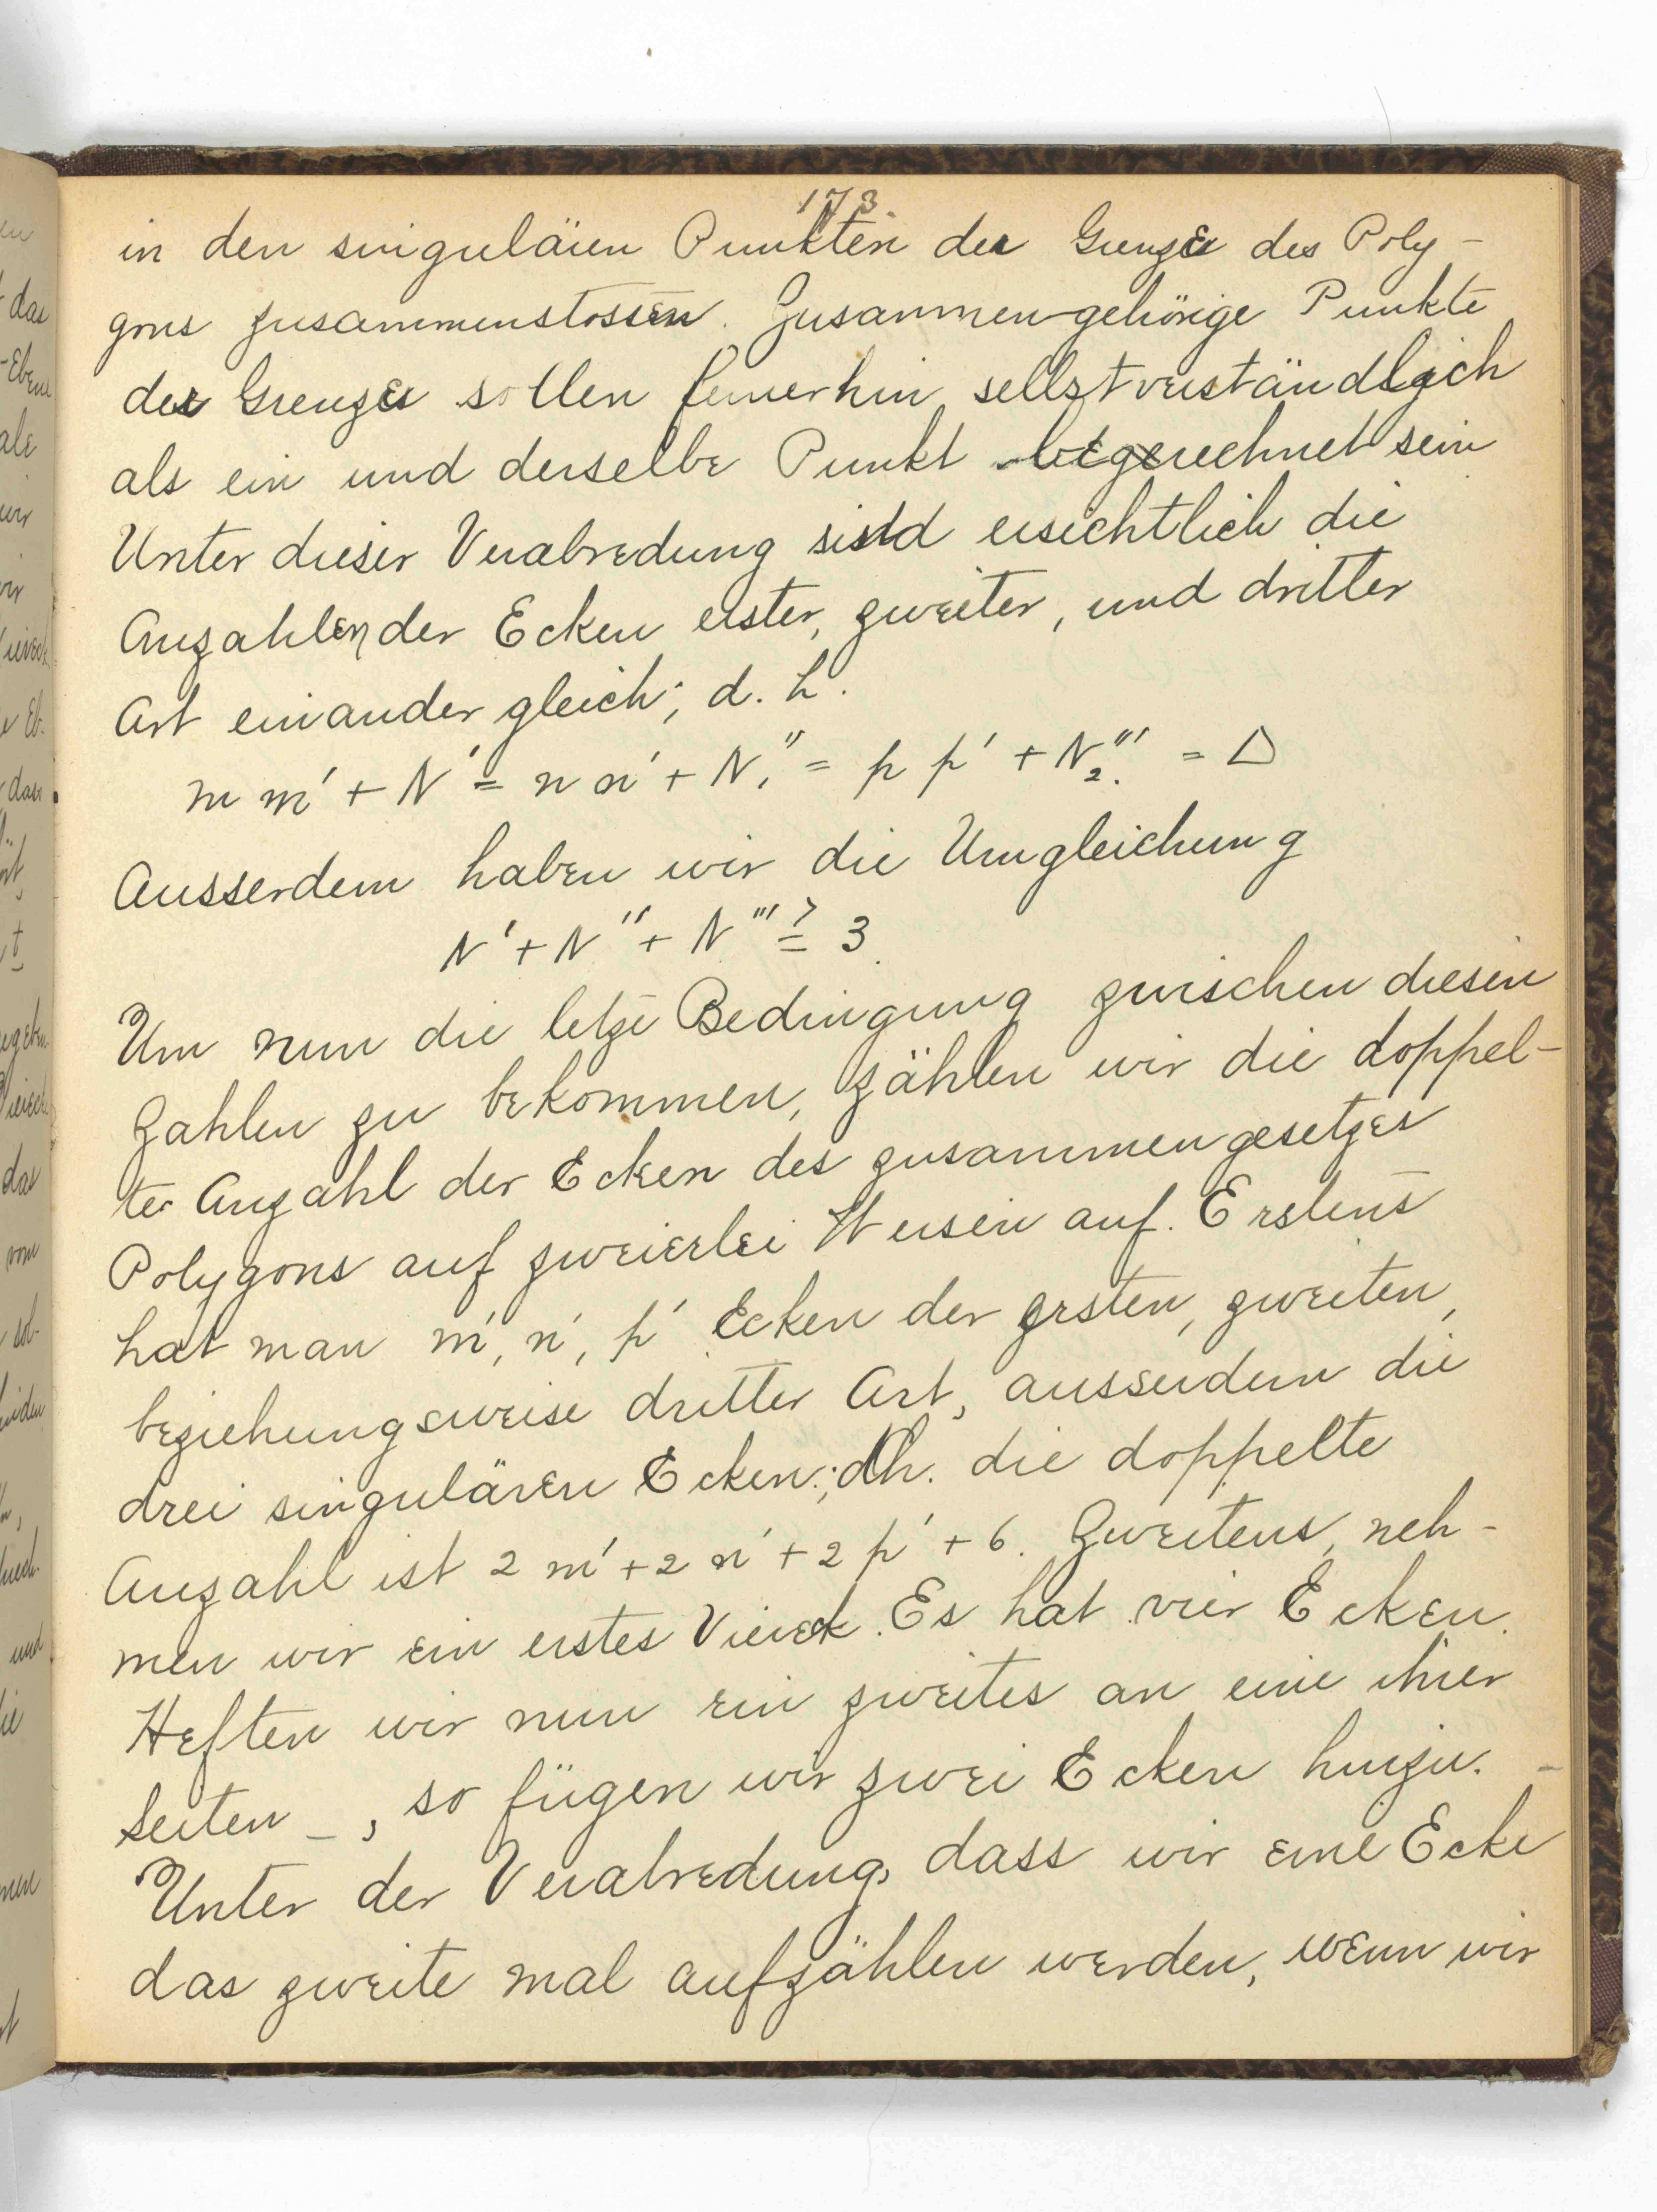 173
in den singulären Punkten der Grenze des Poly-
gons zusammenstossen. Zusammengehörige Punkte
der Grenze sollen fernerhin selbstverständlich
als ein und derselbe Punkt gerechnet sein
Unter dieser Verabredung sind ersichtlich die
Anzahlen der Ecken erster, zweiter, und dritter
Art einander gleich; d. h.
m m' + N' = n n' + N₁'' = p p' + N₂''' = Δ
Ausserdem haben wir die Umgleichung
N' + N'' + N''' ≧ 3.
Um nun die letze Bedingung zwischen diesen
Zahlen zu bekommen, zählen wir die doppel-
te Anzahl der Ecken des zusammengesetzes
Polygons auf zweierlei Weisen auf. Erstens
hat man m', n', p' Ecken der ersten, zweiten,
beziehungsweise dritter Art, ausserdem die
drei singulären Ecken; d.h. die doppelte
Anzahl ist 2 m' + 2 n' + 2 p' + 6. Zweitens, neh-
men wir ein erstes Viereck. Es hat vier Ecken.
Heften wir nun ein zweites an eine ihrer
Seiten _, so fügen wir zwei Ecken hinzu. -
Unter der Verabredung, dass wir eine Ecke
das zweite mal aufzählen werden, wenn wir